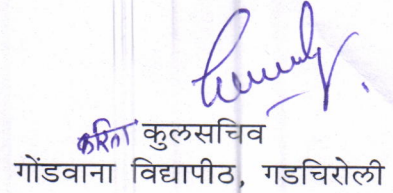 करिता कुलसचिव
गोंडवाना विद्यापीठ, गडचिरोली